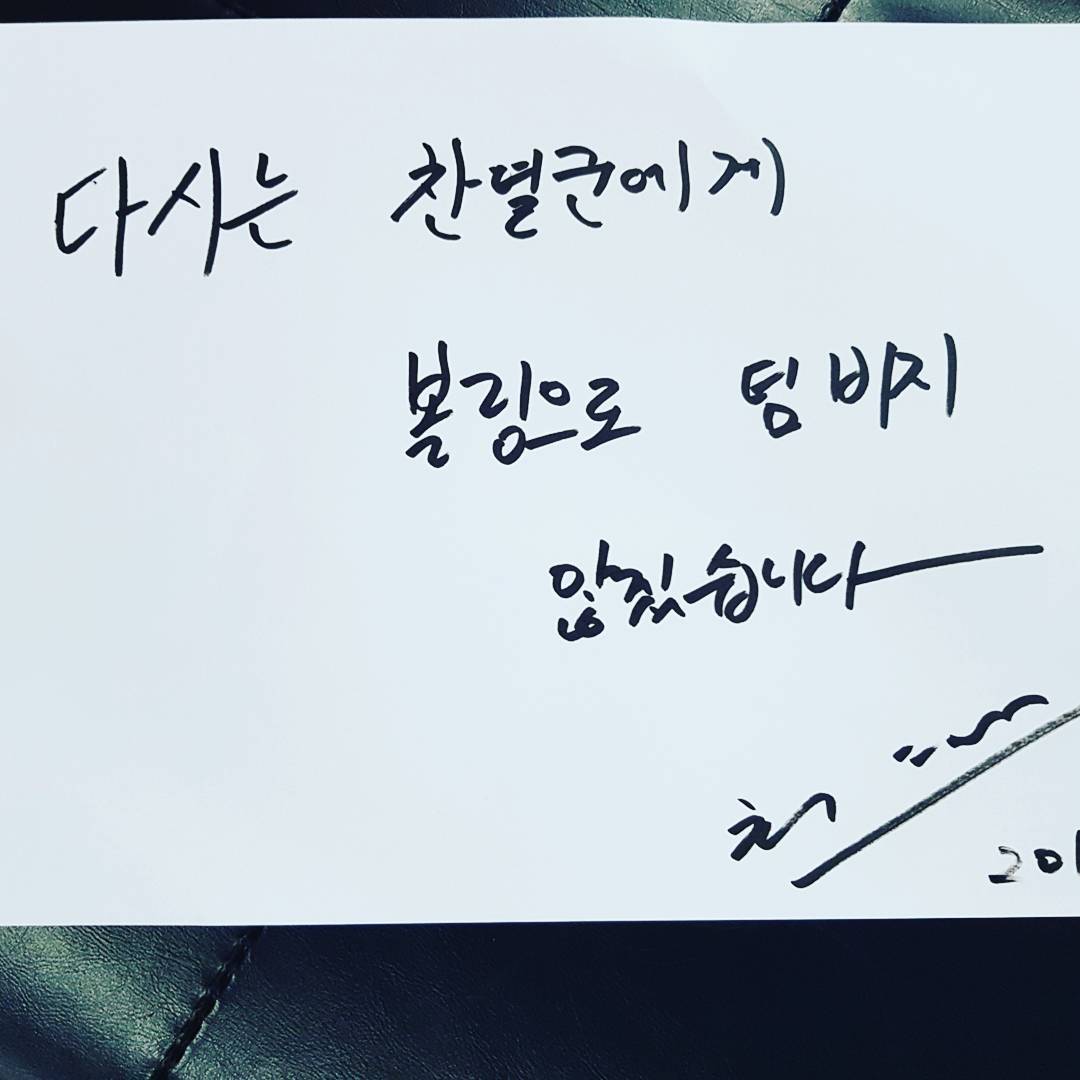 다시는 찬열군에게
볼링으로 덤비지
않겠습니다
201